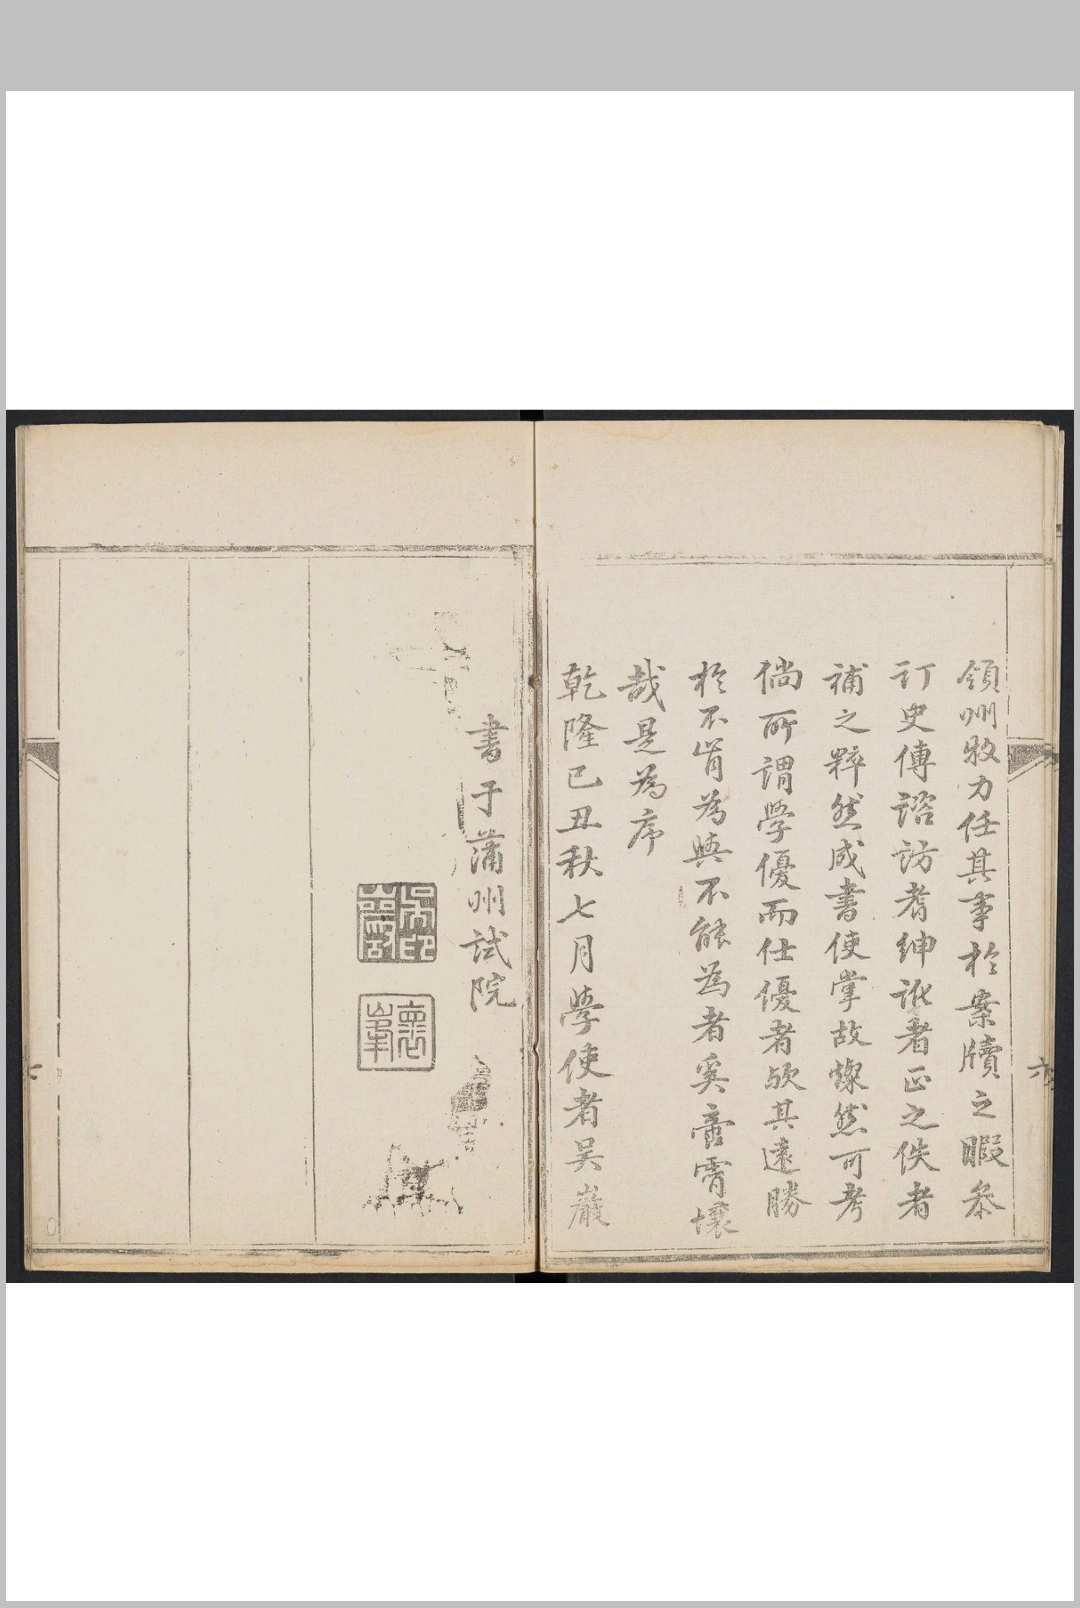 領州牧力任其事於案牘之暇叅
訂史傳諮訪耆紳訛者正之佚者
補之粹然成書使掌故燦然可考
倘所謂學優而仕優者歟其遠勝
於不肯為與不能為者奚啻霄壤
哉是為序
乾隆己丑秋七月學使者吴巖
書于蒲州試院
六
七